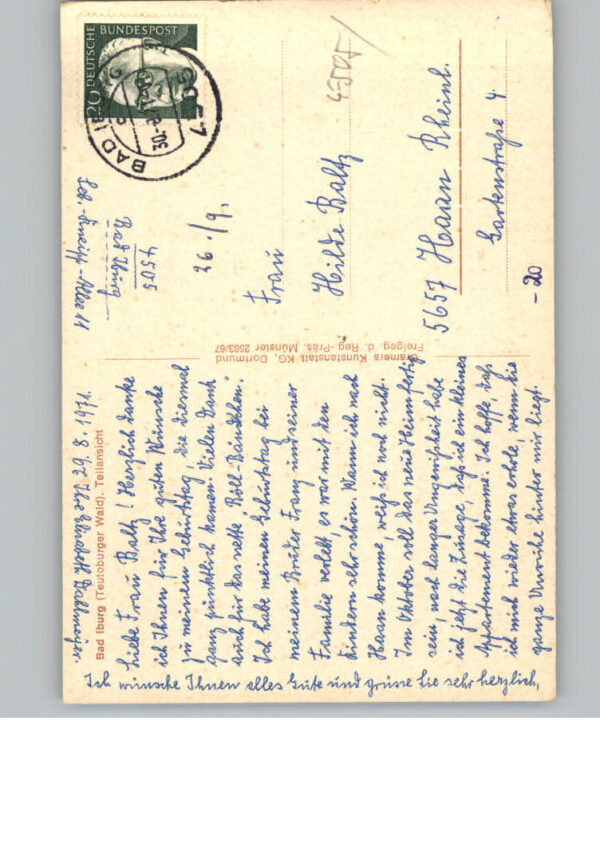 Bad Iburg (Teutoburger Wald). Teilansicht
29. 8. 1971.
Liebe Frau Baltz! Herzlich danke
ich Ihnen für Ihre guten Wünsche
zu meinem Geburtstag, die diesmal
ganz pünktlich kamen. Vielen Dank
auch für das nette "Böll-Bändchen".
Ich habe meinen Geburtstag bei
meinem Bruder Franz und seiner
Familie verlebt, es war mit den
Kindern sehr schön. Wann ich nach
Haan komme, weiß ich noch nicht.
Im Oktober soll das neue Heim fertig
sein, nach langer Ungewißheit habe
ich jetzt die Zusage, daß ich ein kleines
Appartement bekomme. Ich hoffe, daß
ich mich wieder etwas erhole, wenn die
ganze Unruhe hinter mir liegt.
Ich wünsche Ihnen alles Gute und grüsse Sie sehr herzlich,
Ihre Elisabeth Dallmeyer.
Cramers Kunstanstalt KG, Dortmund
Freigeg. d. Reg.-Präs. Münster 2583/67
Seb.-Kneipp-Allee 11
4505
Bad Iburg
26./9.
DEUTSCHE BUNDESPOST
20
BAD IBURG
30.-8.71
Frau
Hilde Baltz
5657 Haan Rheinl.
Gartenstraße 4
-20